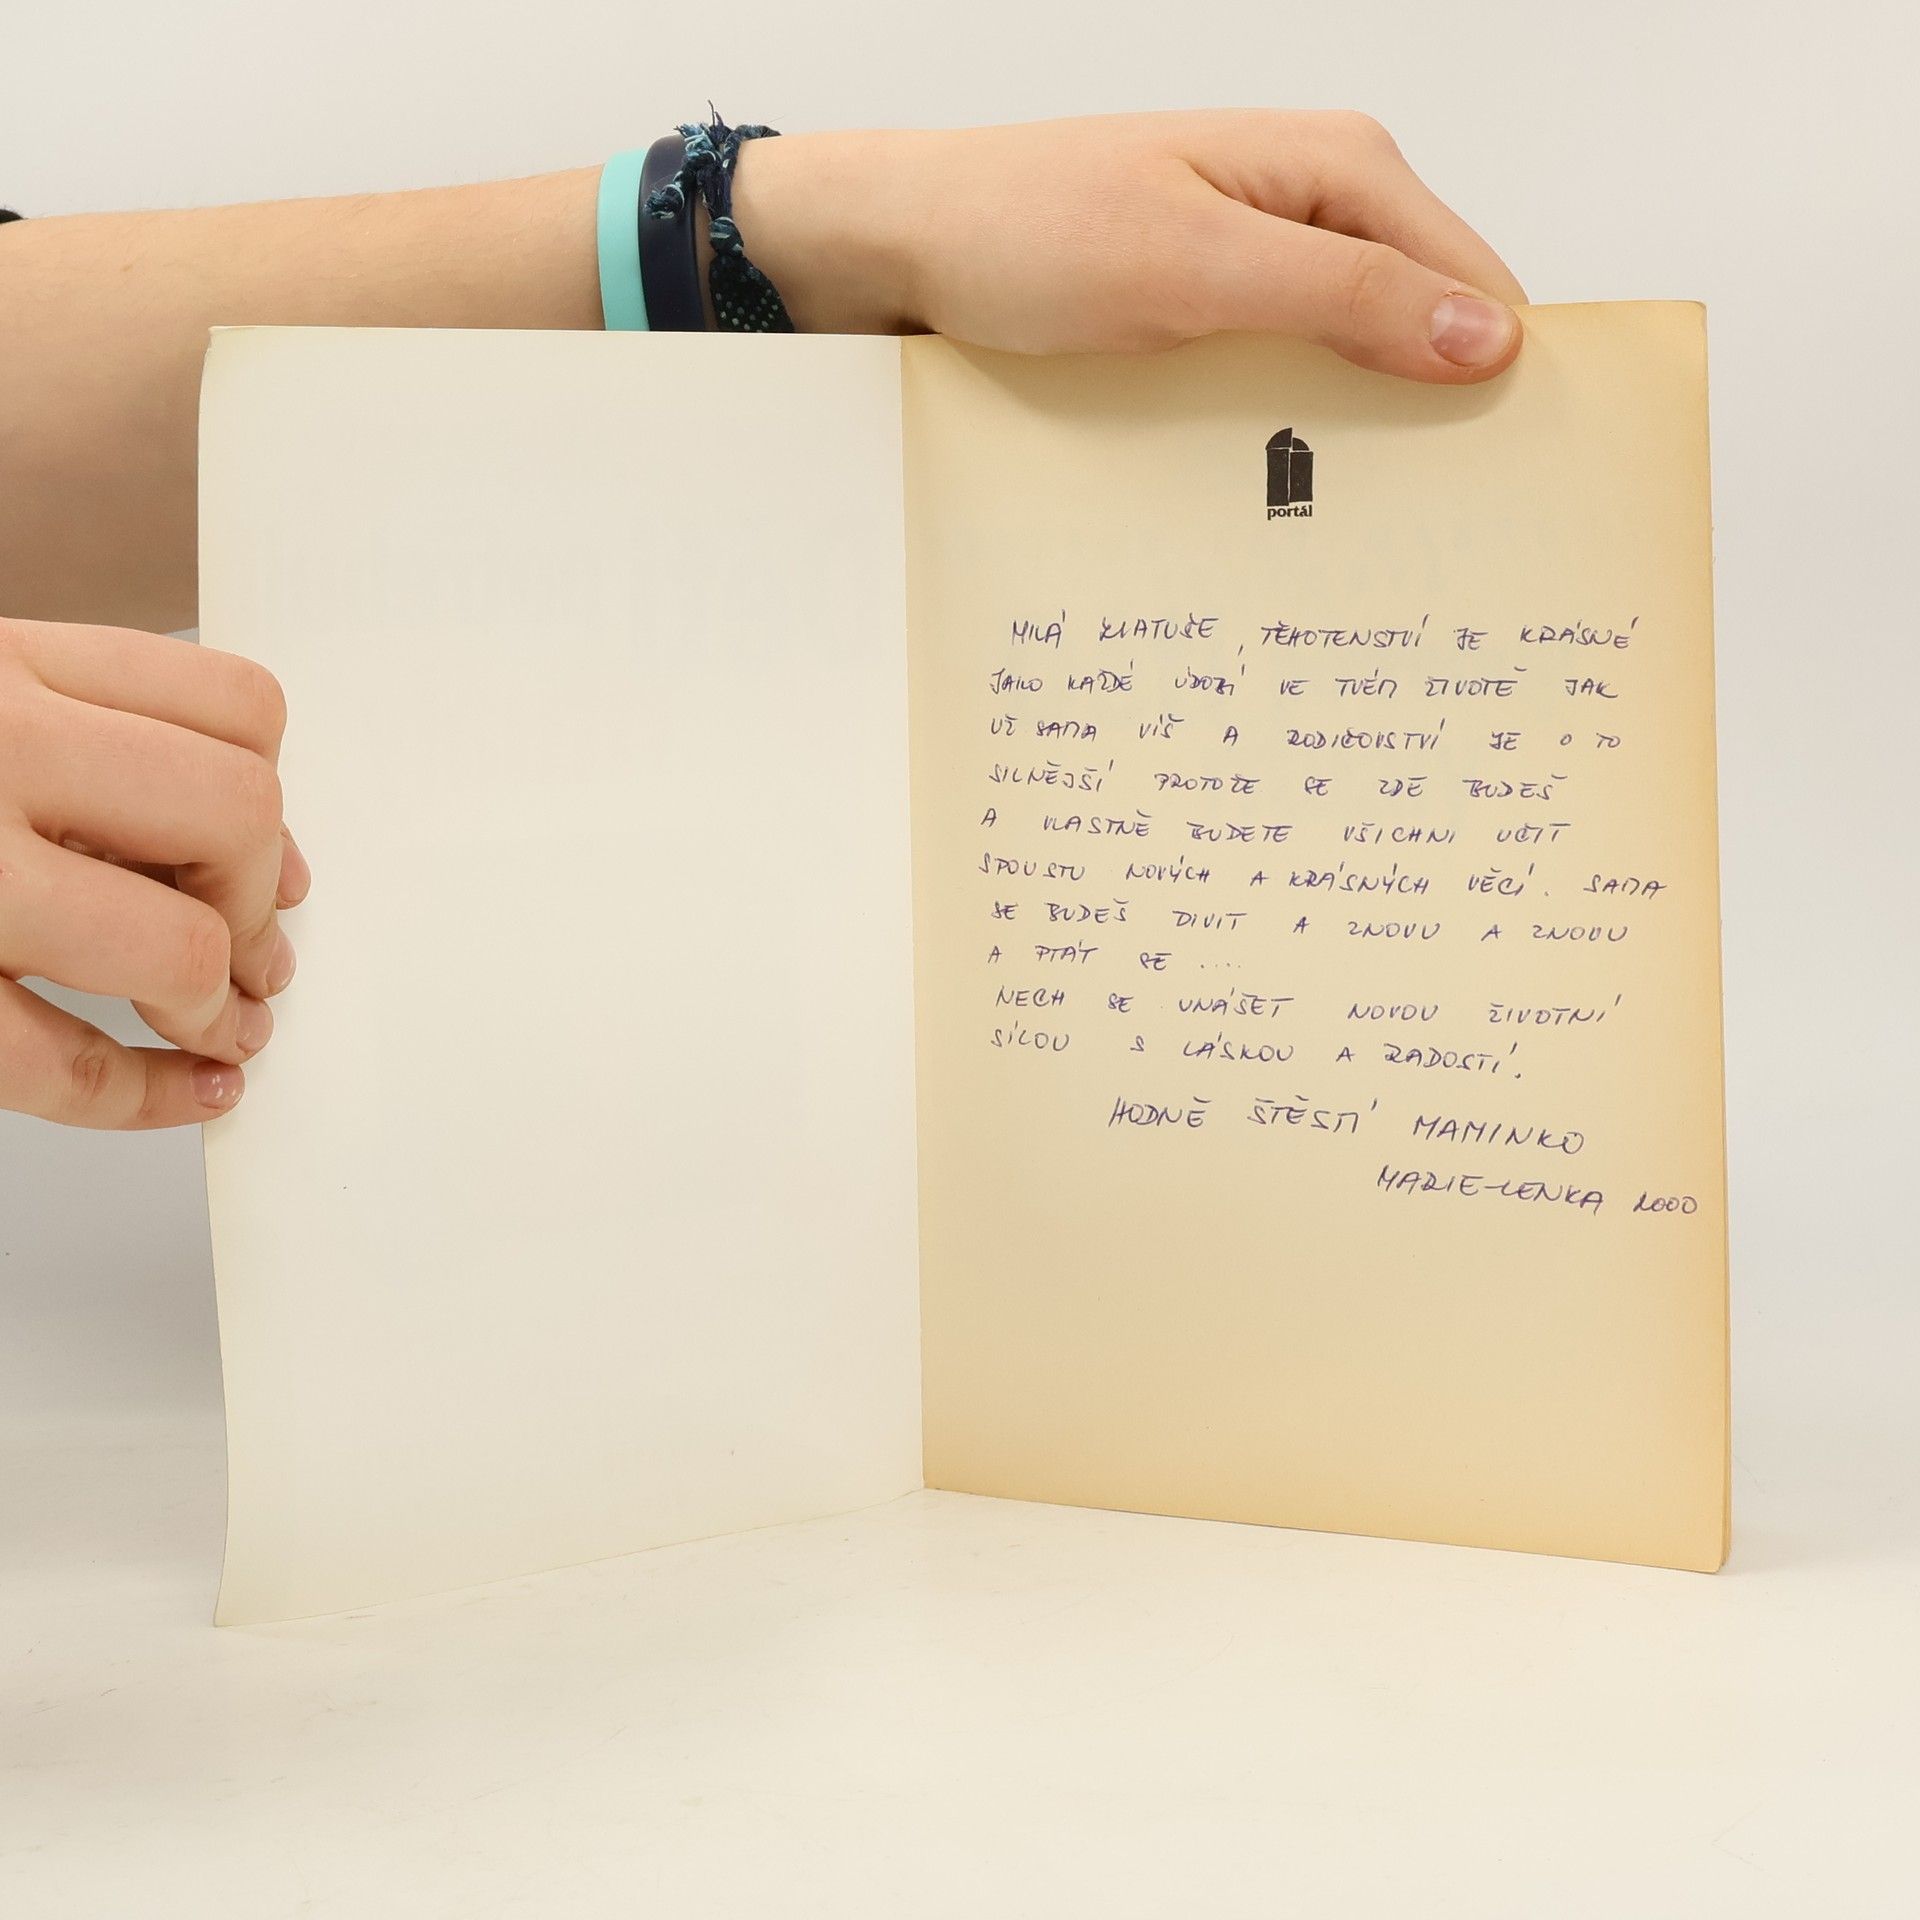 portál
MILÁ ZLATUŠE, TĚHOTENSTVÍ JE KRÁSNÉ
JAKO KAŽDÉ ÚDOBÍ VE TVÉM ŽIVOTĚ JAK
UŽ SAMA VÍŠ A RODIČOVSTVÍ JE O TO
SILNĚJŠÍ PROTOŽE SE ZDE BUDEŠ
A VLASTNĚ BUDETE VŠICHNI UČIT
SPOUSTU NOVÝCH A KRÁSNÝCH VĚCÍ. SAMA
SE BUDEŠ DIVIT A ZNOVU A ZNOVU
A PTÁT SE ....
NECH SE UNÁŠET NOVOU ŽIVOTNÍ
SÍLOU S LÁSKOU A RADOSTÍ.
HODNĚ ŠTĚSTÍ MAMINKO
MARIE-LENKA 2000